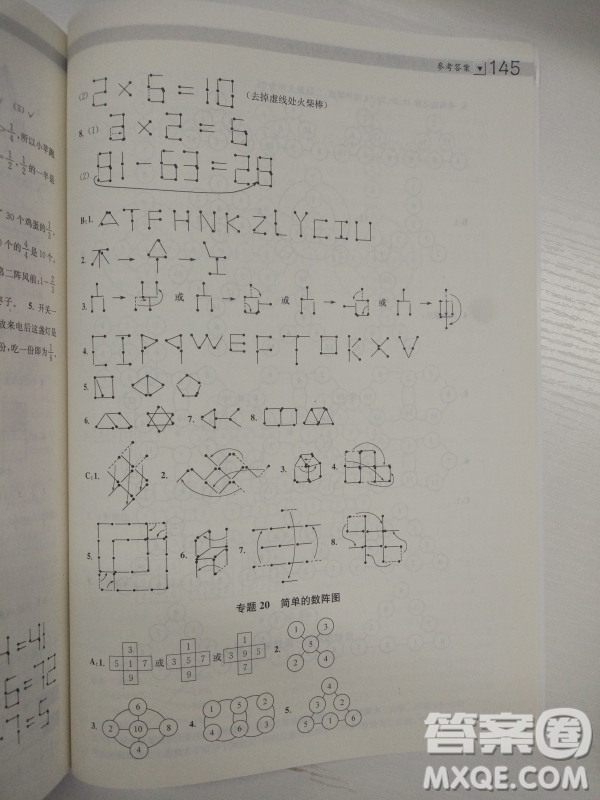 参考答案 ▼ 145
(2) 2×6=10 (去掉虚线处火柴棒)
8. (1) 3×2=6
(2) 91-63=28
B:1. A T F H N K Z L Y C I U
2.
3. 或 或 或
4. C I P G W E F T O K X V
5.
6. 7. 8.
C:1. 2. 3. 4.
5. 6. 7. 8.
专题 20 简单的数阵图
A:1. 3 5 1 7 9 或 1 3 5 7 9 或 1 3 9 5 7 2. 1 3 5 2 4
3. 6 2 10 8 4 4. 1 5 2 4 6 3 5. 3 4 2 5 1 6
(3) ✓
1/4, 所以小苹跑
1/2, 1/2 的一半是
30 个鸡蛋的 1/3,
个的 4/4 是 10 个。
第二阵风前: 1-2/3
终子。 5. 开关一
故来电后这盏灯是
份,吃一份即为 1/4,
4=41
6=72
7=5
答案圈
MXQE.COM